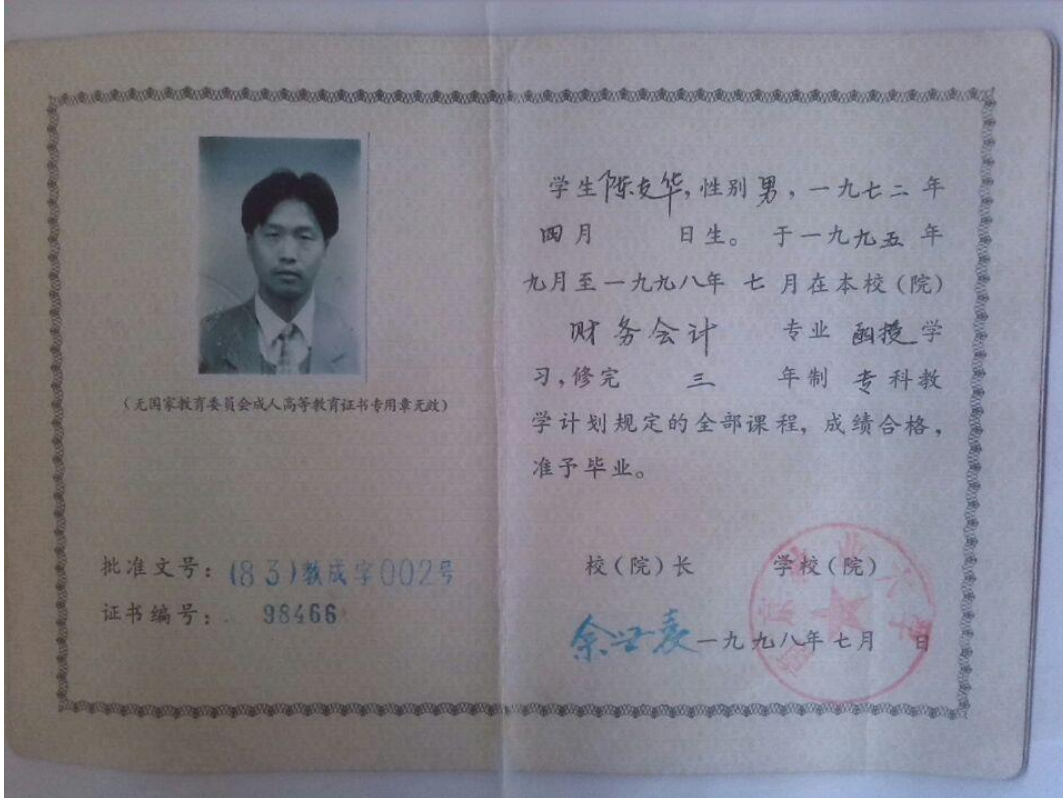 (无国家教育委员会成人高等教育证书专用章无效)
批准文号：(83)教成字002号
证书编号：98466
学生陈友华，性别男，一九七二年
四月 日生。于一九九五年
九月至一九九八年七月在本校(院)
财务会计 专业 函授学
习，修完 三 年制 专科教
学计划规定的全部课程，成绩合格，
准予毕业。
校(院)长 学校(院)
一九九八年七月 日